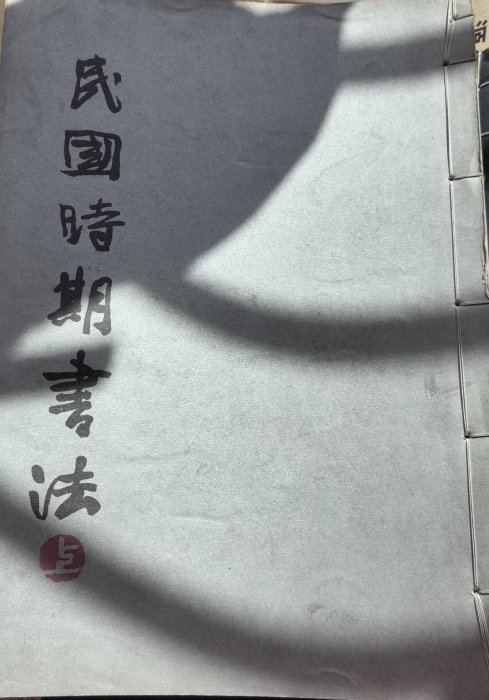 民國時期書法
上